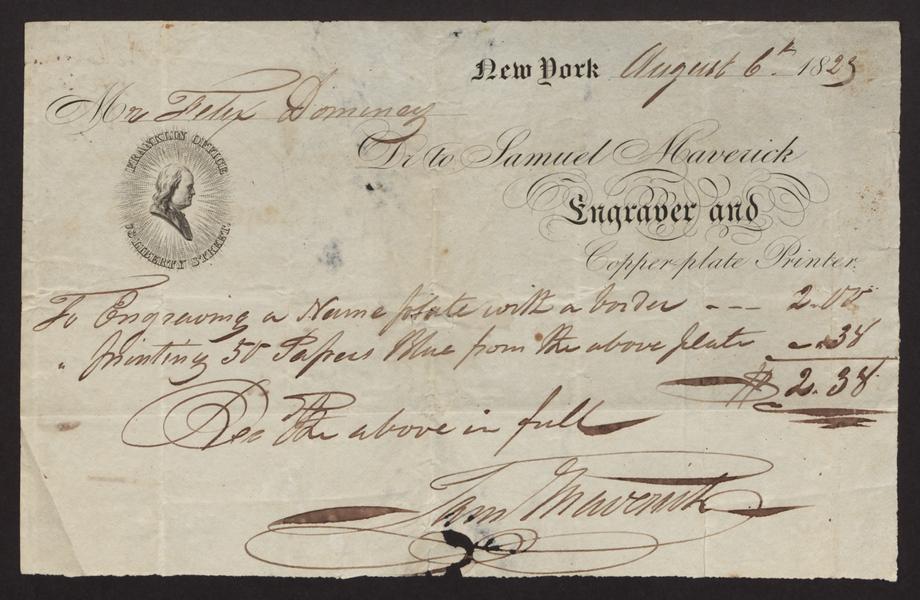 New York August 6th 1823
Mr Felix Dominey
FRANKLIN OFFICE
72 LIBERTY STREET
Dr to Samuel Maverick
Engraver and
Copper-plate Printer.
To Engraving a Name plate with a border --- 2.00
" printing 50 Papers Blue from the above plate - .38
$ 2.38
Rec the above in full
Sam Maverick